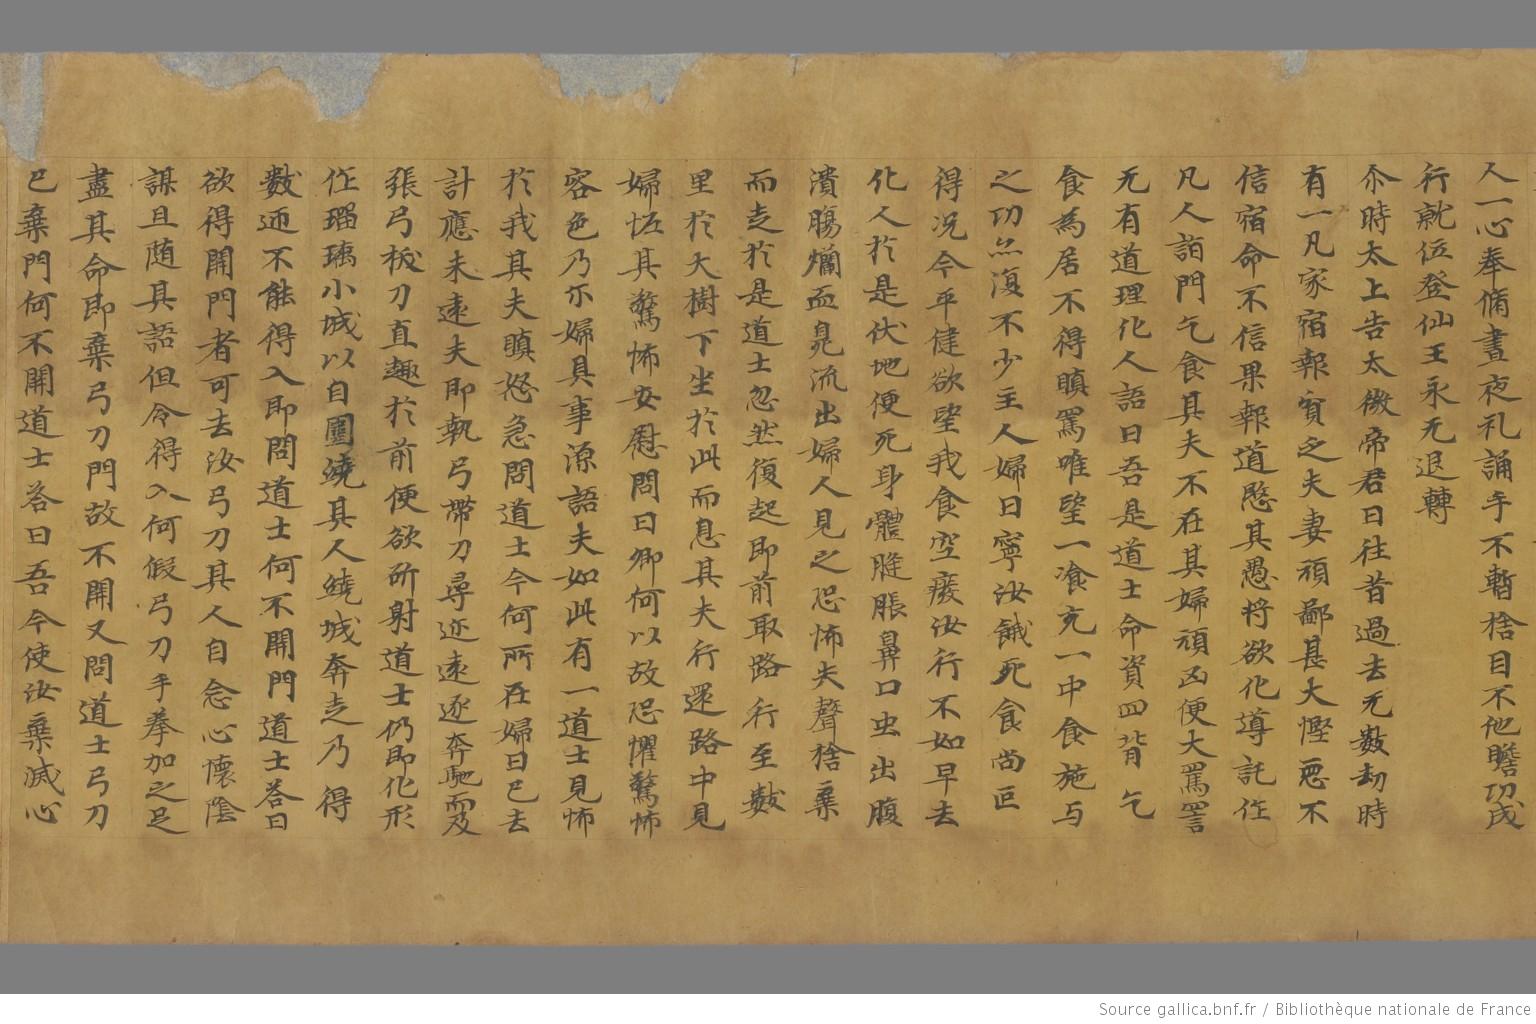 人一心奉脩晝夜礼誦手不暫捨目不他瞻功成
行就位登仙王永无退轉
尒時太上告太微帝君曰往昔過去无數劫時
有一凡家宿報貧乏夫妻頑鄙甚大慳𢙣不
信宿命不信果報道愍其愚将欲化導託作
凡人詣門乞食其夫不在其婦頑凶便大罵詈
无有道理化人語曰吾是道士命資四背乞
食為居不得瞋罵唯望一飡充一中食施与
之功亦復不少主人婦曰寧汝餓死食尚叵
得况今平健欲望我食空癈汝行不如早去
化人於是伏地便死身體膖脹鼻口虫出腹
潰膓爛𠕋晁流出婦人見之恐怖失聲捨棄
而走於是道士忽然復起即前取路行至數
里於大樹下坐於此而息其夫行還路中見
婦恠其驚怖安慰問曰卿何以故恐懼驚怖
容色乃尒婦具事源語夫如此有一道士見怖
於我其夫瞋怒急問道士今何所在婦曰已去
計應未遠夫即執弓帶刀尋迹遠逐奔馳而及
張弓拔刀直趣於前便欲斫射道士仍即化形
作瑠璃小城以自圍繞其人繞城奔走乃得
數迊不能得入即問道士何不開門道士荅曰
欲得開門者可去汝弓刀其人自念心懷陰
謀且随其語但令得入何假弓刀手拳加之足
盡其命即棄弓刀門故不開又問道士弓刀
已棄門何不開道士荅曰吾今使汝棄滅心